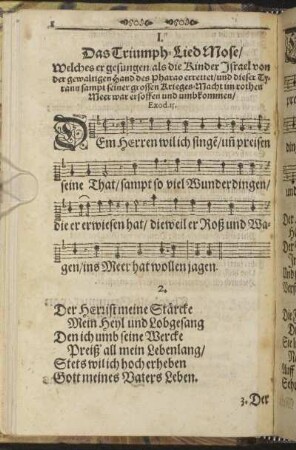 I.
Das Triumph-Lied Mose/
Welches er gesungen als die Kinder Jsrael von
der gewaltigen Hand des Pharao errettet/und dieser Ty-
rann sampt seiner grossen Krieges-Macht im rothen
Meer war ersoffen und umbkommen/
Exod.15.
DEm Herren wil ich singē/uñ preisen
seine That/sampt so viel Wunderdingen/
die er erwiesen hat/dieweil er Roß und Wa-
gen/ins Meer hat wollen jagen.
2.
Der Herr ist meine Stärcke
Mein Heyl und Lobgesang
Den ich umb seine Wercke
Preiß' all mein Lebenlang/
Stets wil ich hoch erheben
Gott meines Vaters Leben.
3. Der